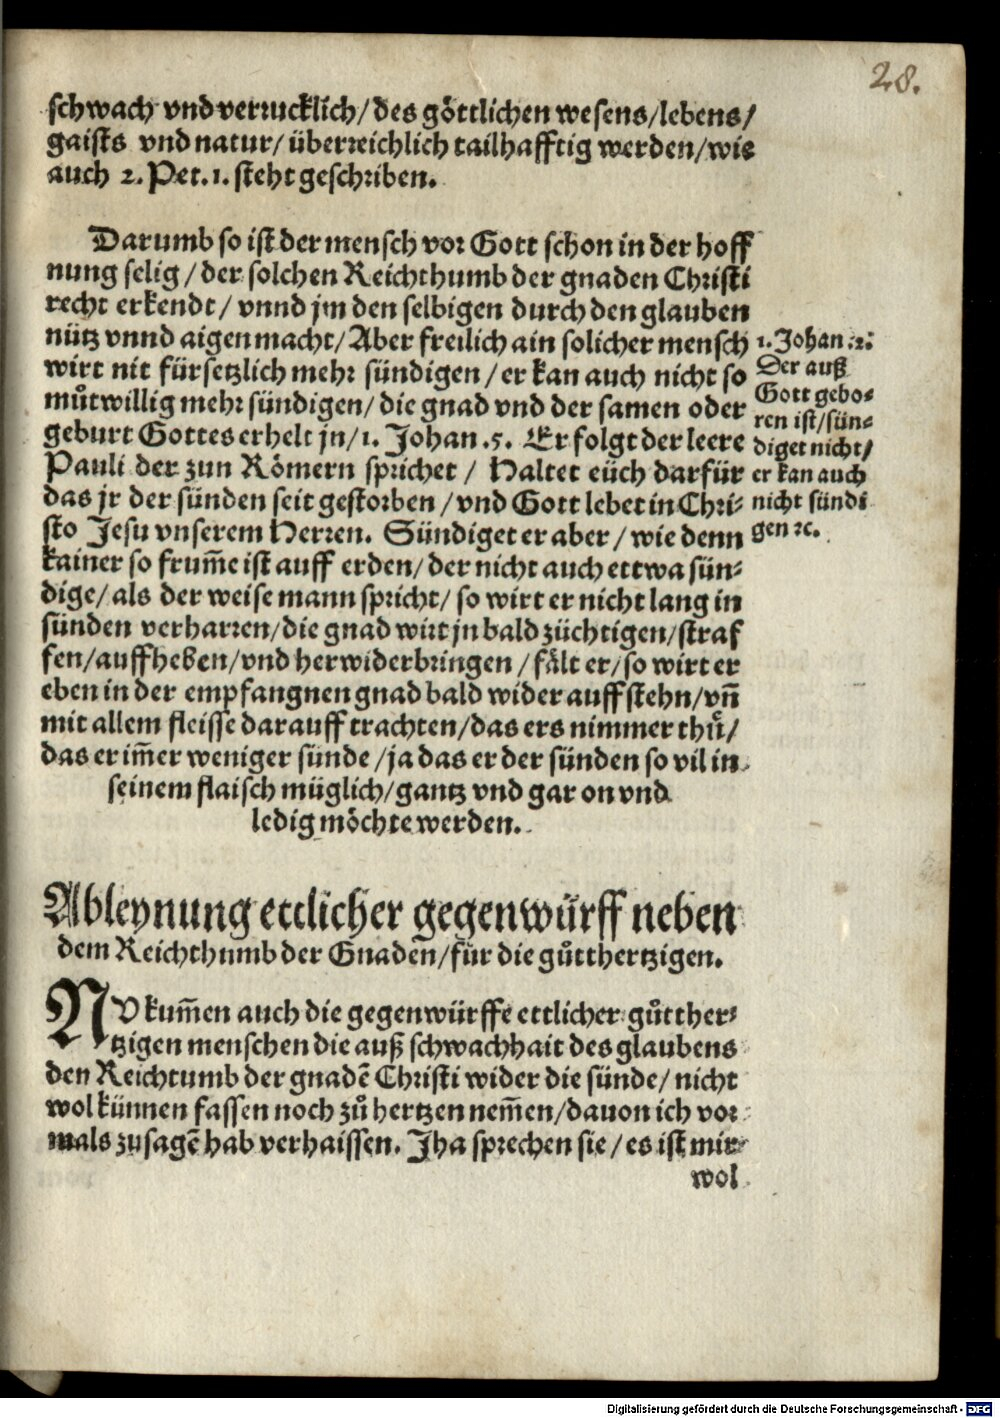 28.
schwach vnd verrucklich/des göttlichen wesens/lebens/
gaists vnd natur/überreichlich tailhafftig werden/wie
auch 2. Pet. 1. steht geschriben.
Darumb so ist der mensch vor Gott schon in der hoff
nung selig/der solchen Reichthumb der gnaden Christi
recht erkendt/vnnd jm den selbigen durch den glauben
nütz vnnd aigen macht/Aber freilich ain solicher mensch
wirt nit fürsetzlich mehr sündigen/er kan auch nicht so
můtwillig mehr sündigen/die gnad vnd der samen oder
geburt Gottes erhelt jn/1. Johan .5. Er folgt der leere
Pauli der zun Römern sprichet/Haltet eüch darfür
das jr der sünden seit gestorben/vnd Gott lebet in Chri-
sto Jesu vnserem Herren. Sündiget er aber/wie denn
kainer so frum̃e ist auff erden/der nicht auch ettwa sün-
dige/als der weise mann spricht/so wirt er nicht lang in
sünden verharren/die gnad wirt jn bald züchtigen/straf
fen/auffheben/vnd herwiderbringen/fält er/so wirt er
eben in der empfangnen gnad bald wider auffstehn/vñ
mit allem fleisse darauff trachten/das ers nimmer thů/
das er im̃er weniger sünde/ja das er der sünden so vil in
seinem flaisch müglich/gantz vnd gar on vnd
ledig möchte werden.
1. Johan .2.
Der auß
Gott gebo-
ren ist/sün-
diget nicht/
er kan auch
nicht sündi
gen ꝛc.
Ableynung ettlicher gegenwürff neben
dem Reichthumb der Gnadẽn/für die gůtthertzigen.
NV kum̃en auch die gegenwürffe ettlicher gůtther-
tzigen menschen die auß schwachhait des glaubens
den Reichtumb der gnadẽ Christi wider die sünde/nicht
wol künnen fassen noch zů hertzen nem̃en/dauon ich vor
mals zusagẽ hab verhaissen. Jha sprechen sie/es ist mir
wol
Digitalisierung gefördert durch die Deutsche Forschungsgemeinschaft - DFG